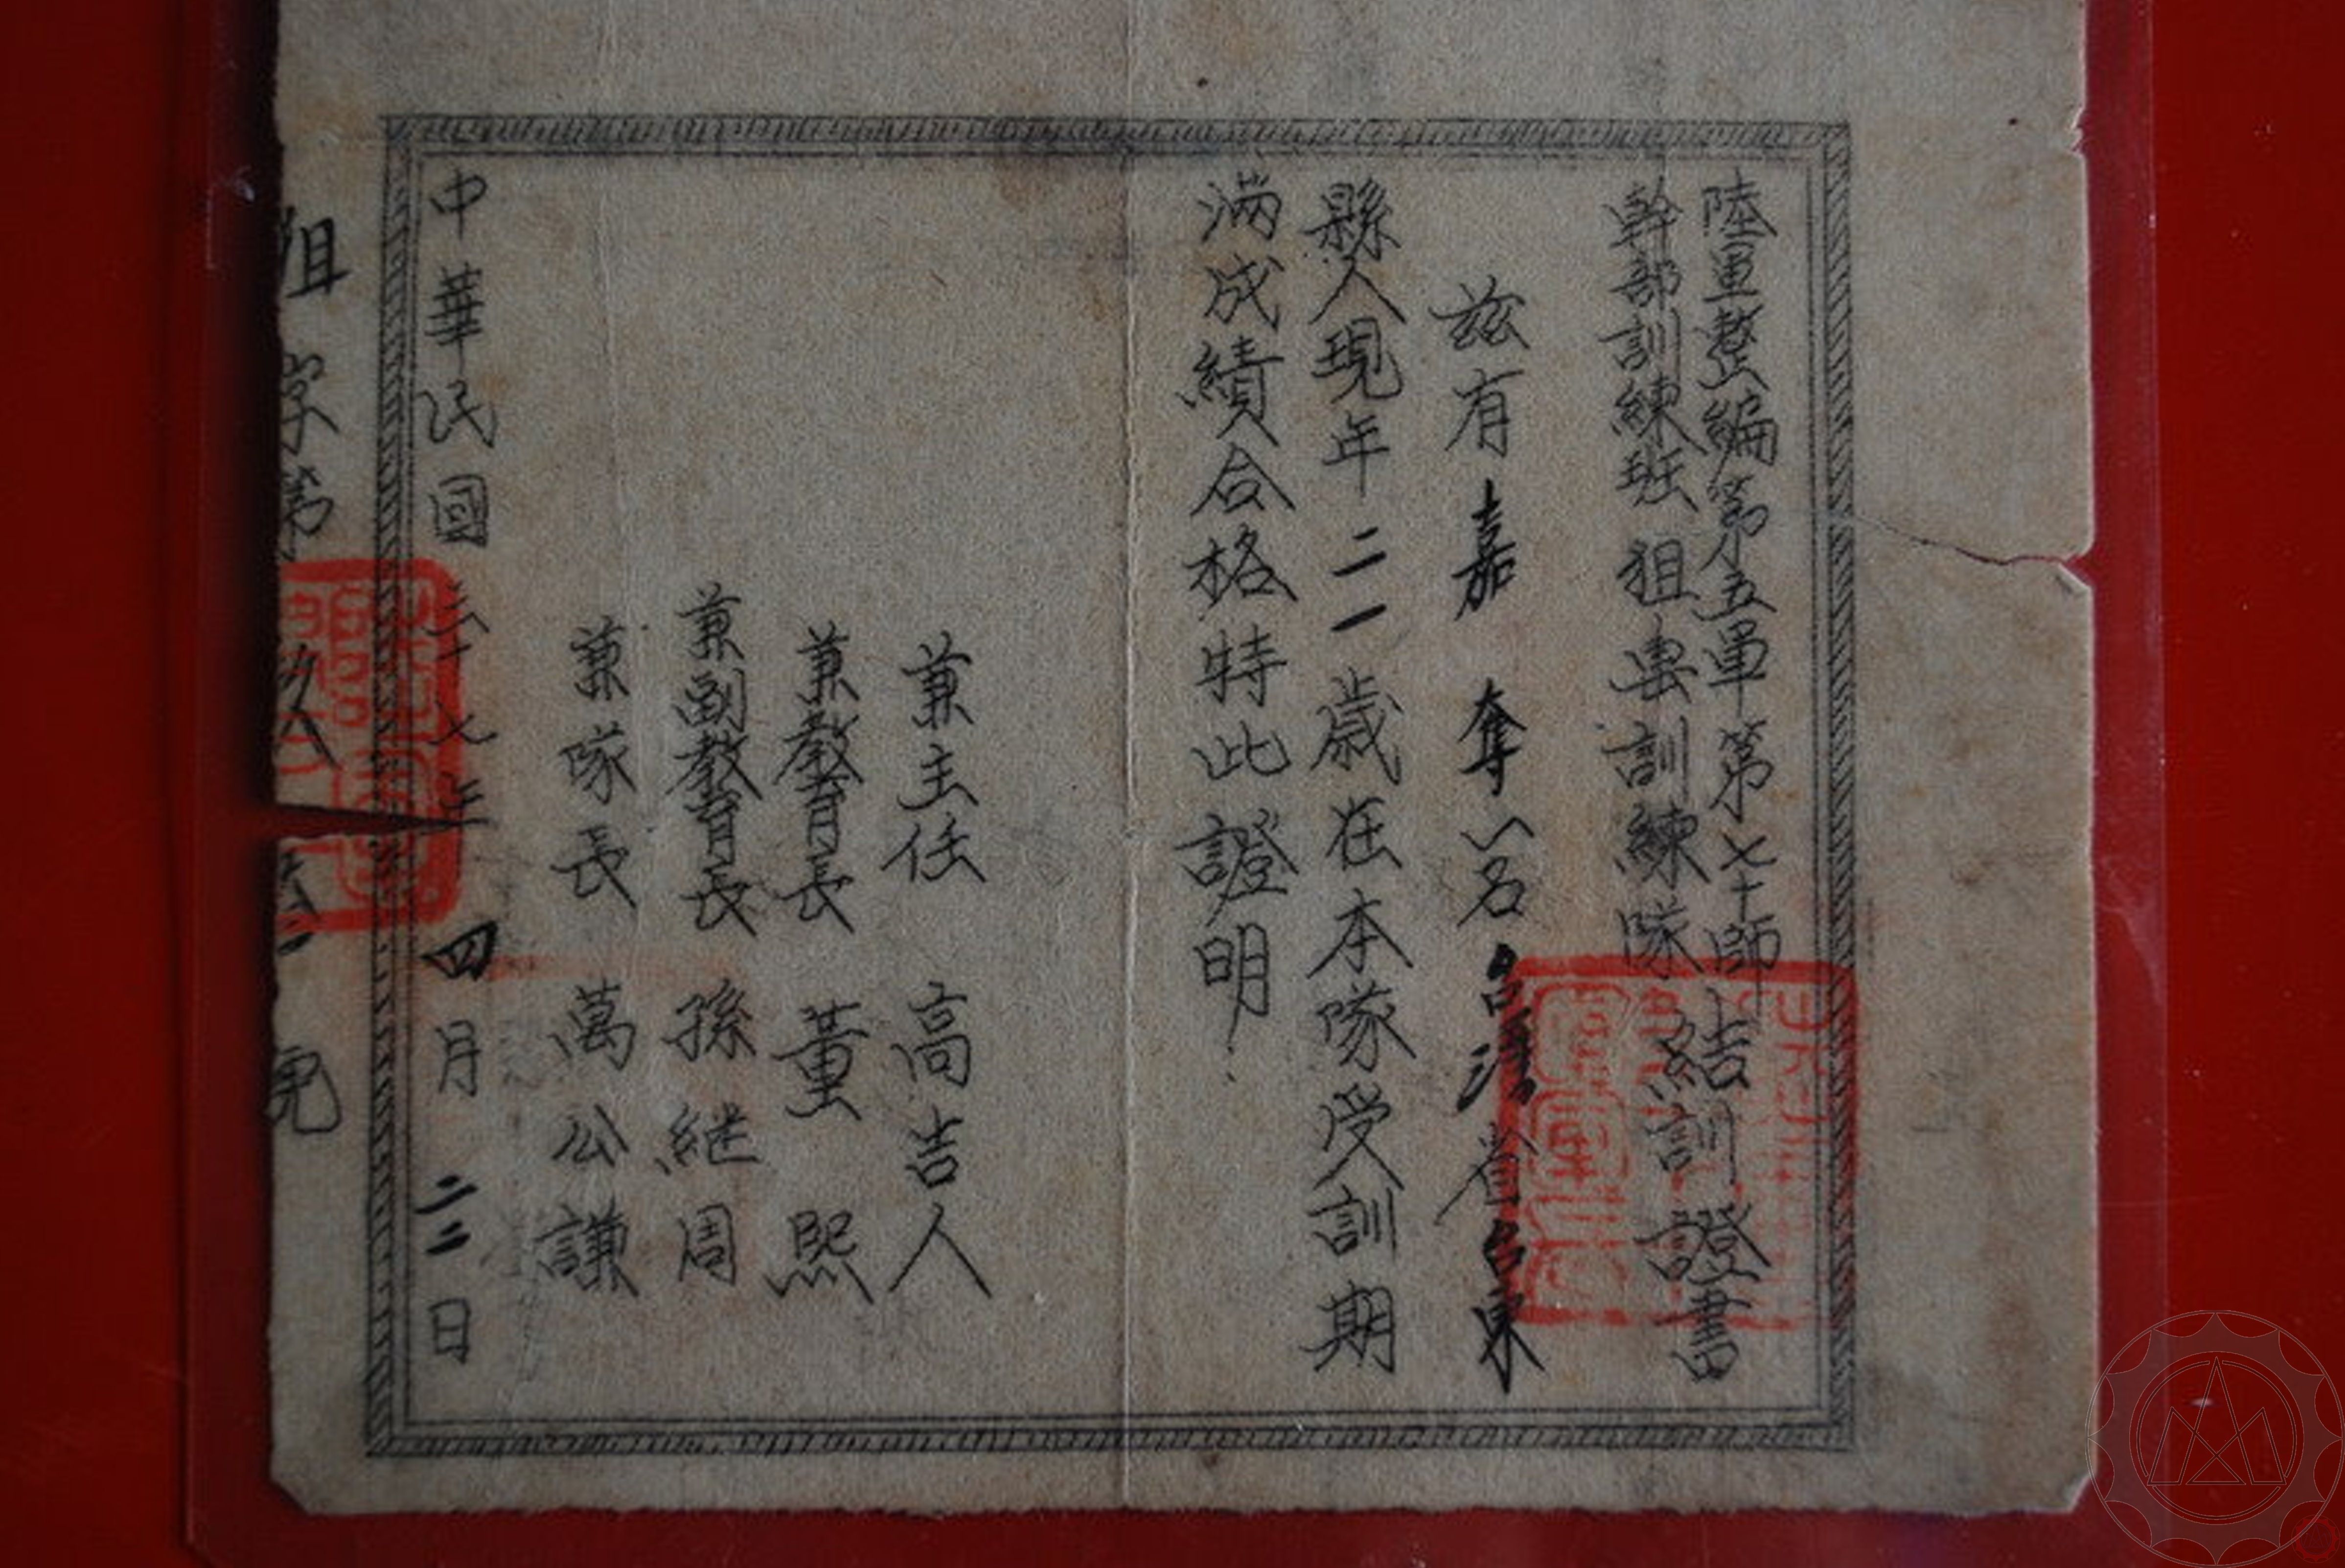 陸軍整編第五軍第七十師
幹部訓練班狙擊訓練隊
結訓證書
茲有嘉奪八名台灣省台東
縣人現年二一歲在本隊受訓期
滿成績合格特此證明
兼主任 高吉人
兼教育長 董熙
兼副教育長 孫継周
兼隊長 萬公謙
中華民國三十七年四月二二日
狙字第